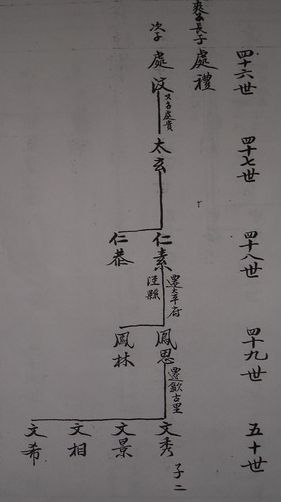 四十六世
爽公長子 處禮
次子 處汶 又名處貴
四十七世
太玄
四十八世
仁素 遷太平府涇縣
仁恭
四十九世
鳳思 遷歙古里
鳳林
五十世
文秀 子二
文景
文相
文希